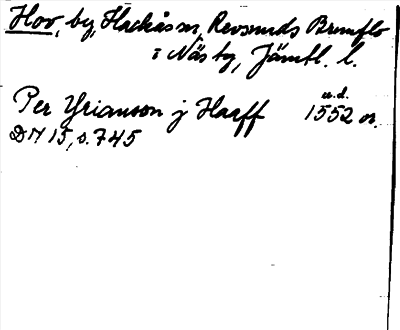 Hov, by, Hackås sn, Revsunds Brunflo
i Näs tg, Jämtl. l.
Per Yrianson j Haaff 1552 or.
u.d.
DN 15, s. 745